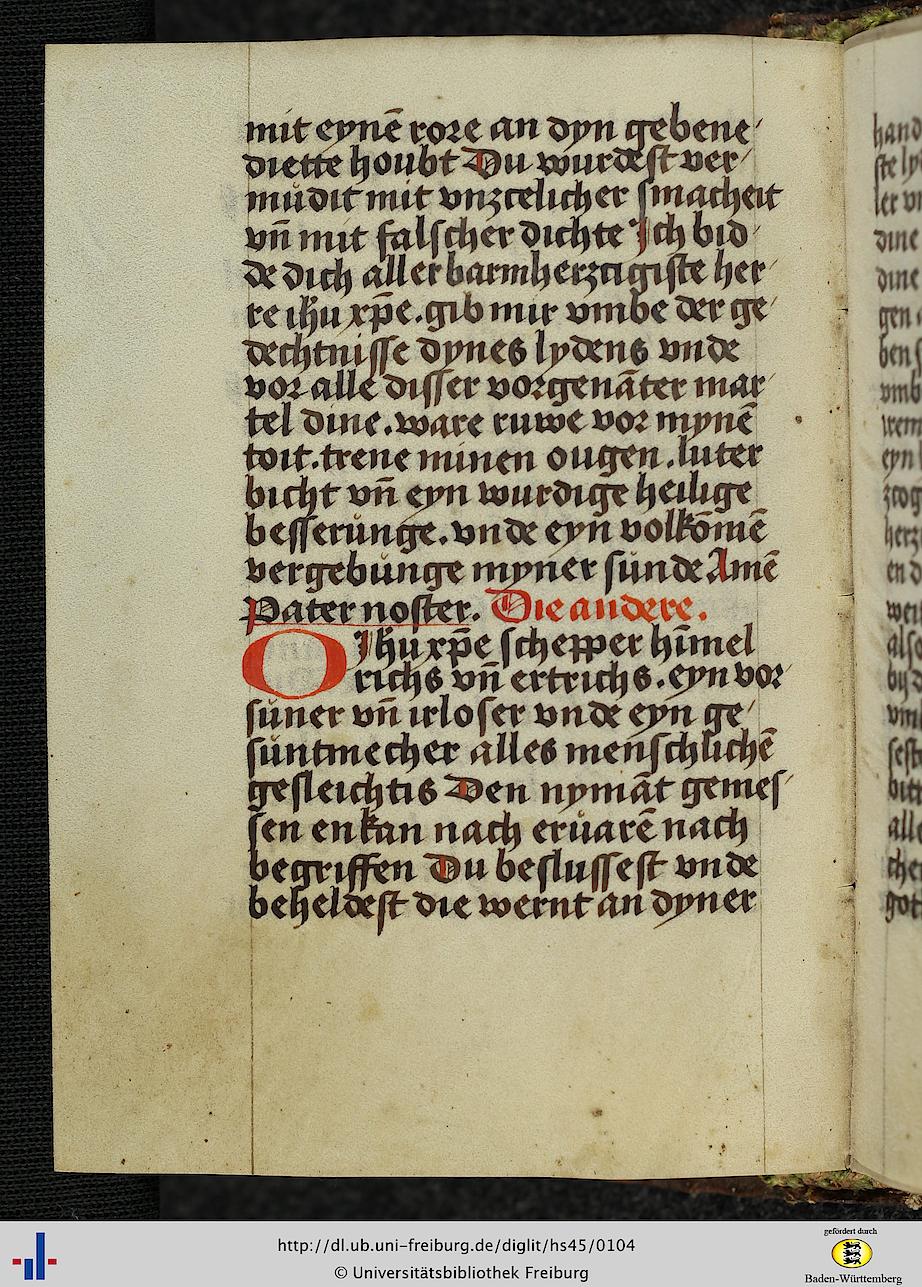 mit eynē rore an dyn gebene⸗
diette houbt Du wurdest ver⸗
mudit mit vnzcelicher smacheit
vn̄ mit falscher dichte Ich bid⸗
de dich aller barmherzcigiste her⸗
re ih̄u xp̄e. gib mir vmbe der ge⸗
dechtnisse dynes lydens vnde
vor alle disser vorgenāter mar⸗
tel dine. ware ruwe vor mynē
toit. trene minen ougen. luter
bicht vn̄ eyn wurdige heilige
besserunge. vnde eyn volkōmē
vergebunge myner sunde Amē
Pater noster. Die andere.
O Ih̄u xp̄e schepper hīmel
richs vn̄ ertrichs. eyn vor⸗
suner vn̄ irloser vnde eyn ge⸗
suntmecher alles menschlichē
gesleichtis Den nymāt gemes⸗
sen enkan nach eruarē nach
begriffen Du beslussest vnde
beheldest die wernt an dyner
http://dl.ub.uni-freiburg.de/diglit/hs45/0104
© Universitätsbibliothek Freiburg
gefördert durch
Baden-Württemberg